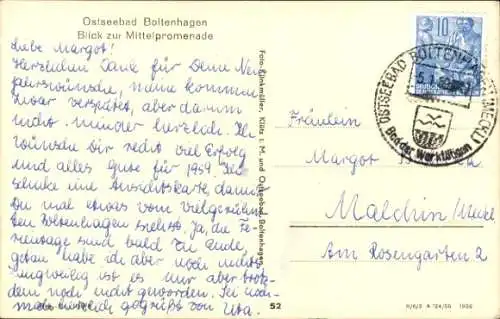 Ostseebad Boltenhagen
Blick zur Mittelpromenade
Liebe Margot!
Herzlichen Dank für Deine Neu-
jahrswünsche, meine kommen
zwar verspätet, aber darum
nicht minder herzlich. Ich
wünsche Dir recht viel Erfolg
und alles Gute für 1959. Ich
schicke eine Ansichtskarte, damit
Du mal etwas vom vielgerühm-
ten Boltenhagen siehst. Ja, die Fe-
rientage sind bald zu Ende,
getan habe ich aber noch nichts
langweilig ist es mir aber trotz-
dem noch nicht geworden. Sei
herzlich gegrüßt von Uta.
Foto-Funkmüller, Klütz i. M. und Ostseebad Boltenhagen
52
10
DEUTSCHE
OSTSEEBAD BOLTENHAGEN (MECKL)
Bad der Werktätigen
Fräulein
Margot
Malchin/Meckl.
Am Rosengarten 2